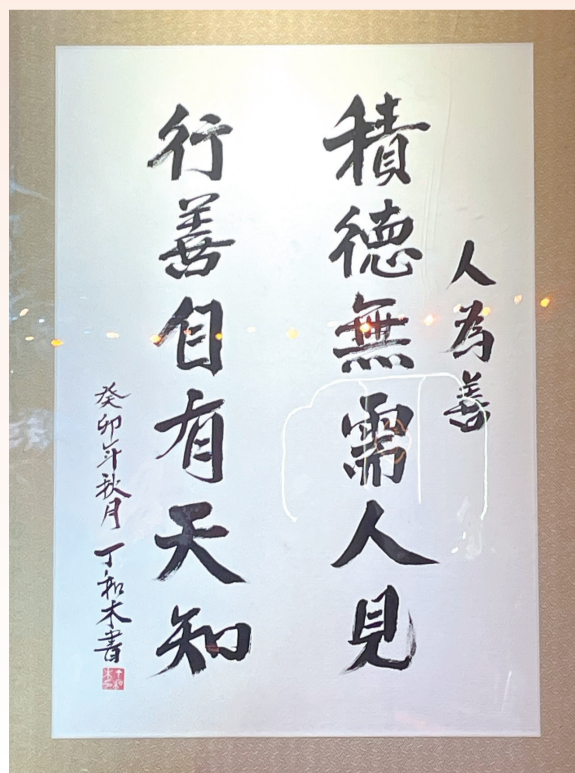 人為善
積德無需人見
行善自有天知
癸卯年秋月 丁和木書